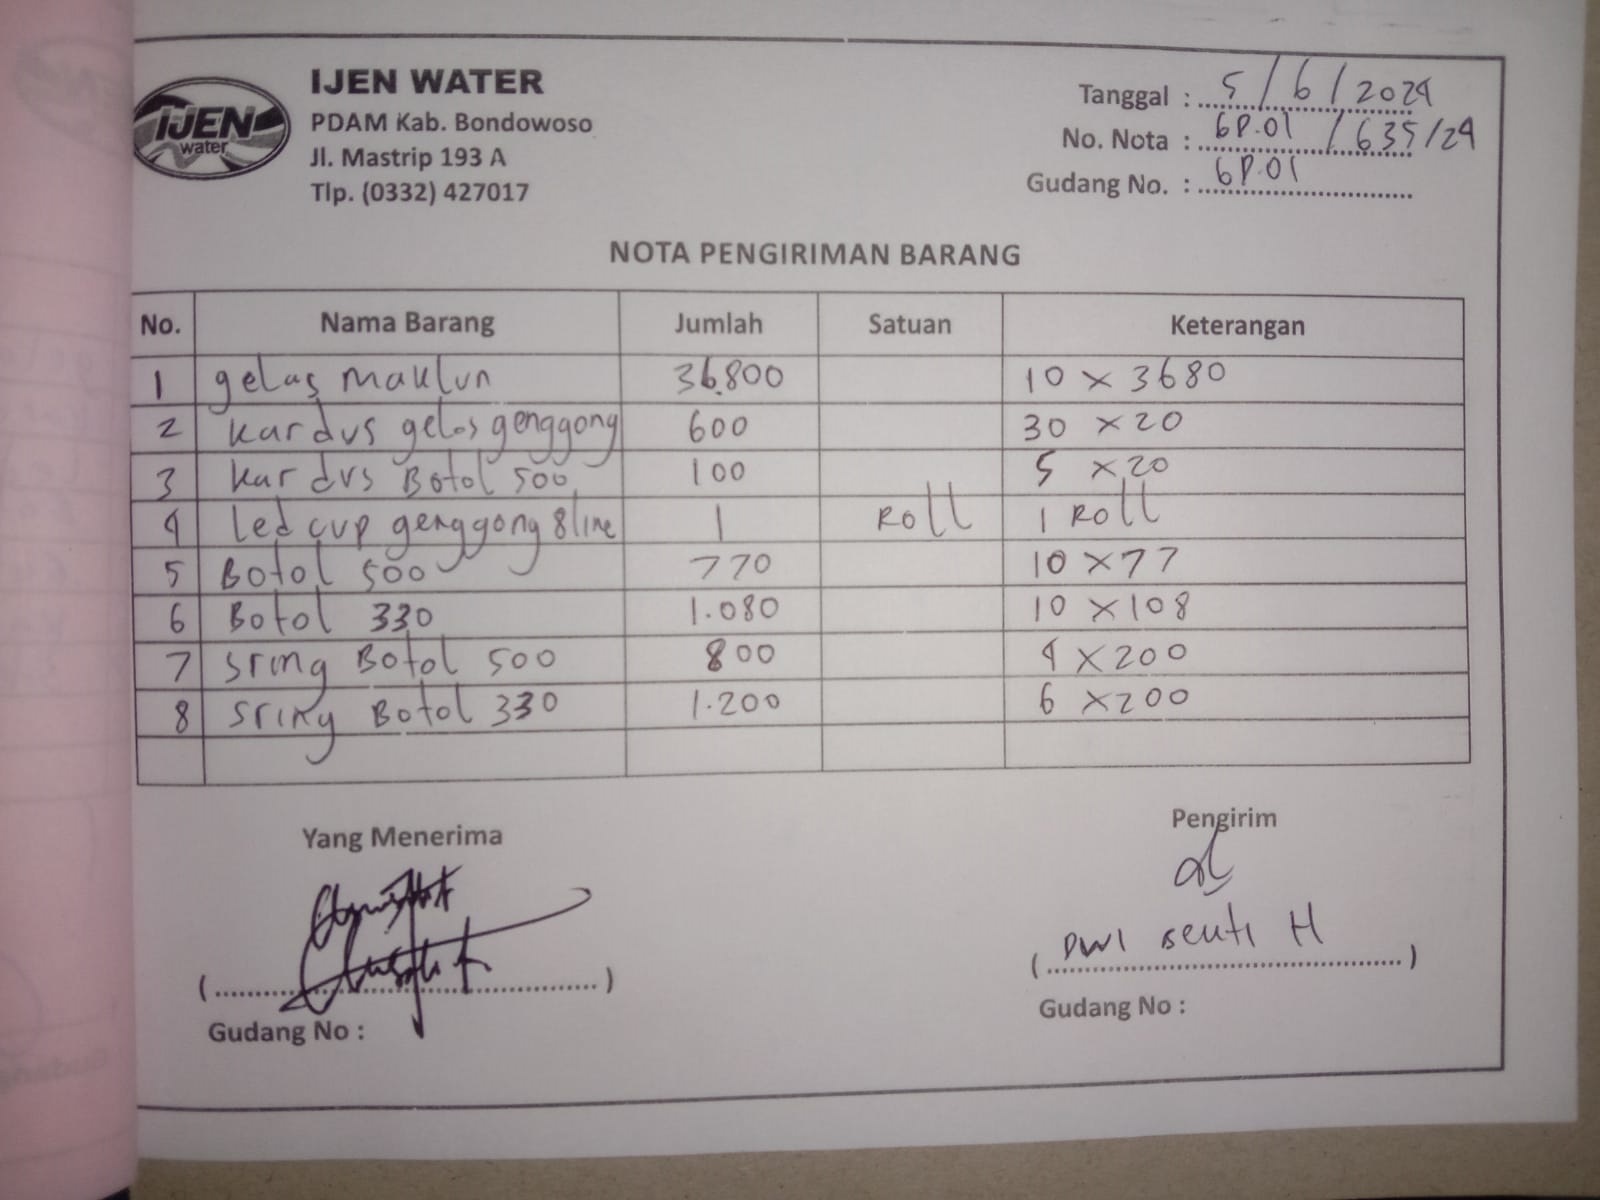 IJEN
water
IJEN WATER
PDAM Kab. Bondowoso
Jl. Mastrip 193 A
Tlp. (0332) 427017
Tanggal : 5/6/2024
No. Nota : 6P.01 / 635/24
Gudang No. : 6P.01
NOTA PENGIRIMAN BARANG
No. Nama Barang Jumlah Satuan Keterangan
1 gelas Maklun 36.800 10 x 3680
2 kardus gelas genggong 600 30 x 20
3 kardus Botol 500 100 5 x 20
4 Led cup genggong 8 line 1 Roll 1 Roll
5 Botol 500 770 10 x 77
6 Botol 330 1.080 10 x 108
7 sring Botol 500 800 4 x 200
8 sring Botol 330 1.200 6 x 200
Yang Menerima
Pengirim
DWI H
Gudang No :
Gudang No :